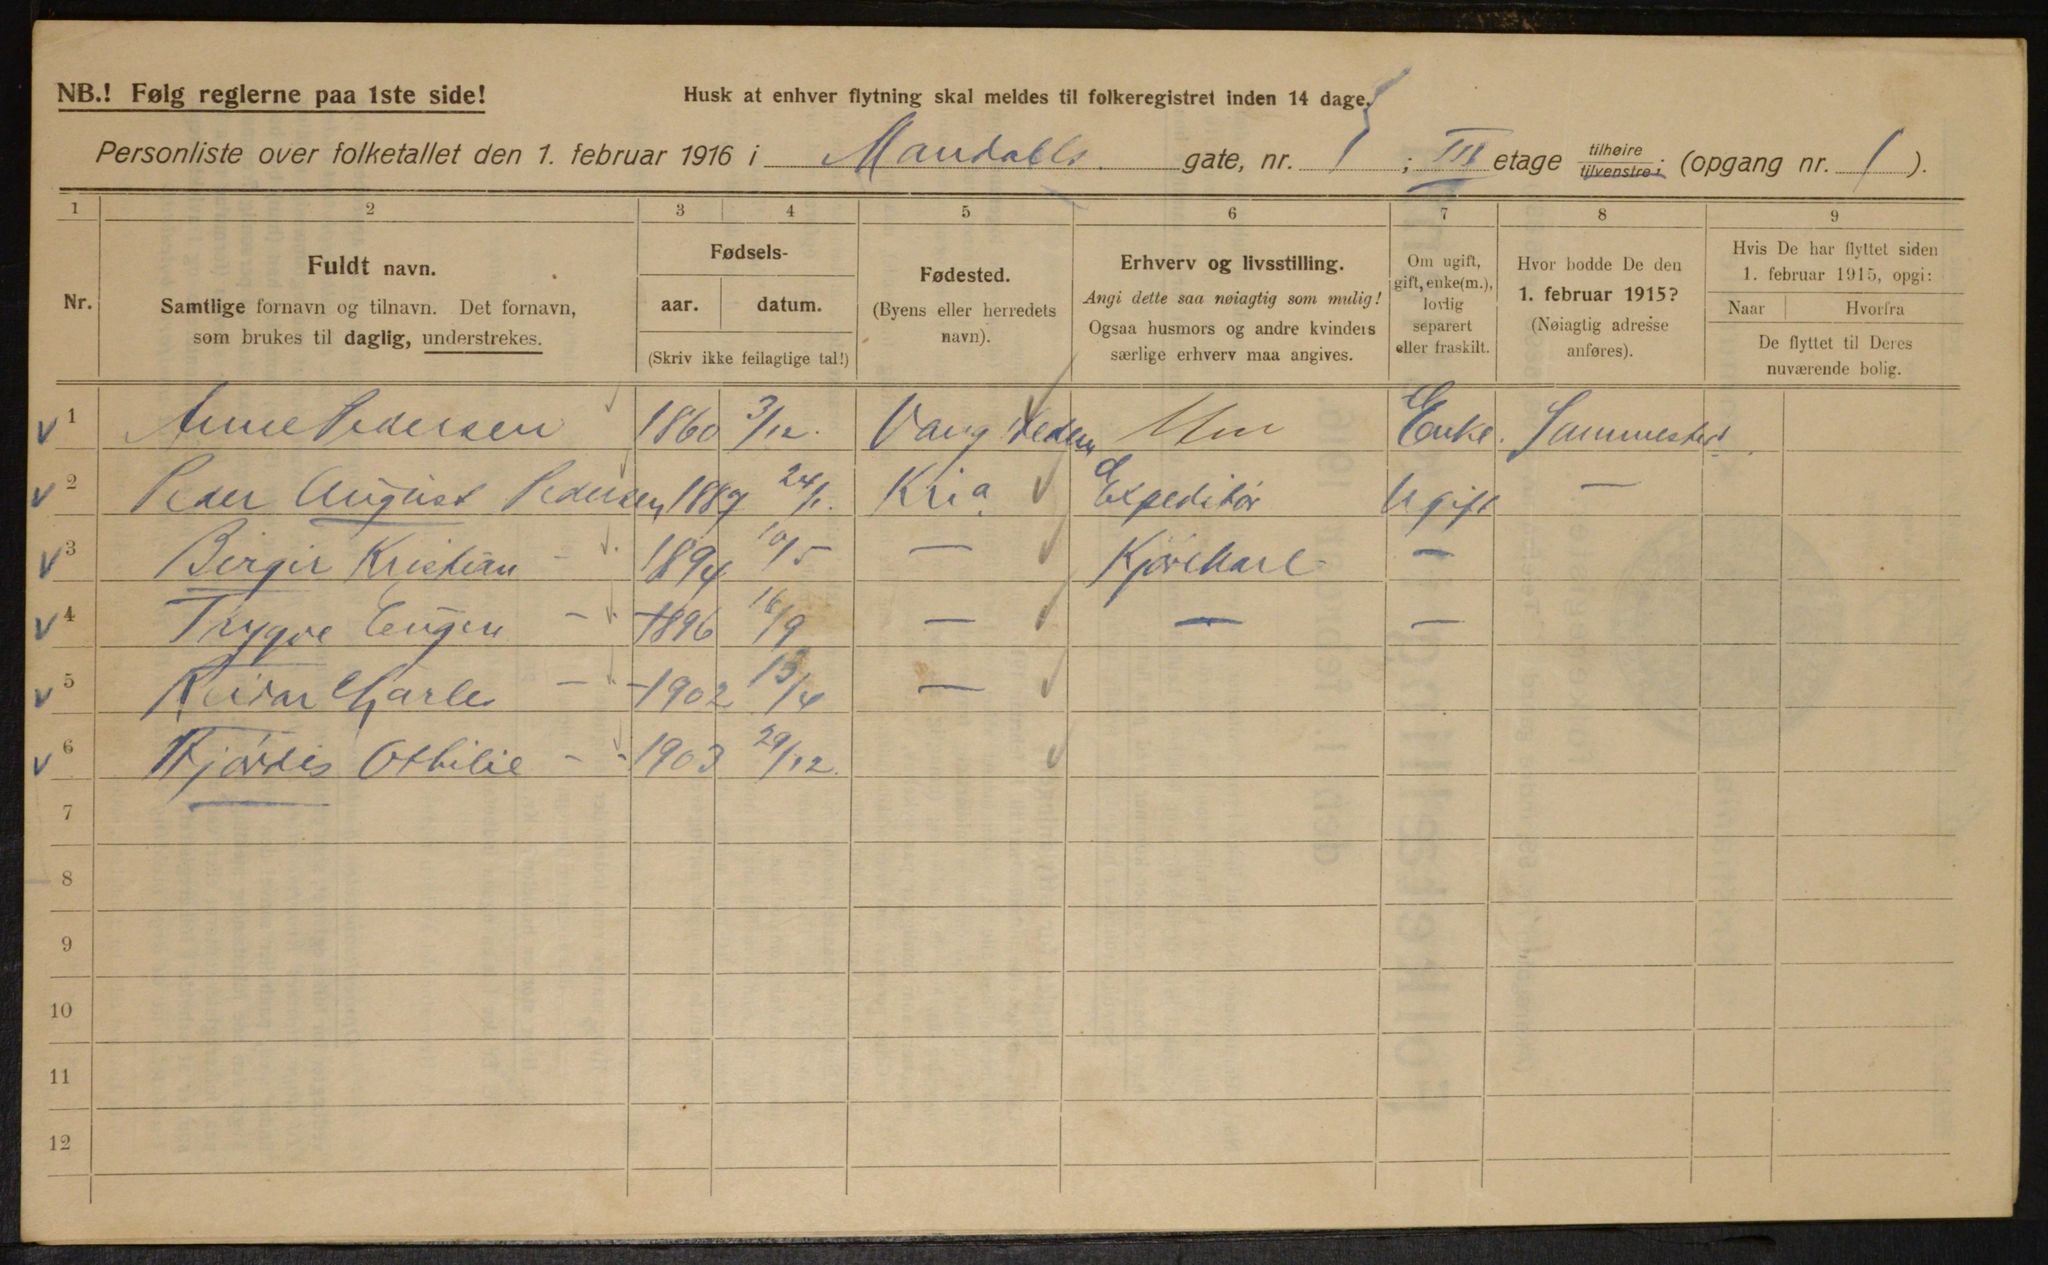 NB.! Følg reglerne paa 1ste side!
Husk at enhver flytning skal meldes til folkeregistret inden 14 dage.
Personliste over folketallet den 1. februar 1916 i Mandalls gate, nr. 1 ; III etage tilhøire tilvenstre; (opgang nr. 1 ).
1 2 3 4 5 6 7 8 9
Nr.
Fuldt navn.
Samtlige fornavn og tilnavn. Det fornavn,
som brukes til daglig, understrekes.
Fødsels-
aar. datum.
(Skriv ikke feilagtige tal!)
Fødested.
(Byens eller herredets
navn).
Erhverv og livsstilling.
Angi dette saa nøiagtig som mulig!
Ogsaa husmors og andre kvinders
særlige erhverv maa angives.
Om ugift,
gift, enke(m.),
lovlig
separert
eller fraskilt.
Hvor bodde De den
1. februar 1915?
(Nøiagtig adresse
anføres).
Hvis De har flyttet siden
1. februar 1915, opgi:
Naar Hvorfra
De flyttet til Deres
nuværende bolig.
1 Anne Pedersen 1860 3/12. Vang Enke.
2 Peder August Pedersen 1889 24/1. Kria Expeditør Ugift —
3 Birger Kristian - 1894 10/5 — Kjørekarl —
4 Trygve Eugen - 1896 16/9 — — —
5 Reidar Charles - 1902 13/4 —
6 Hjørdis Othilie - 1903 29/12.
7
8
9
10
11
12